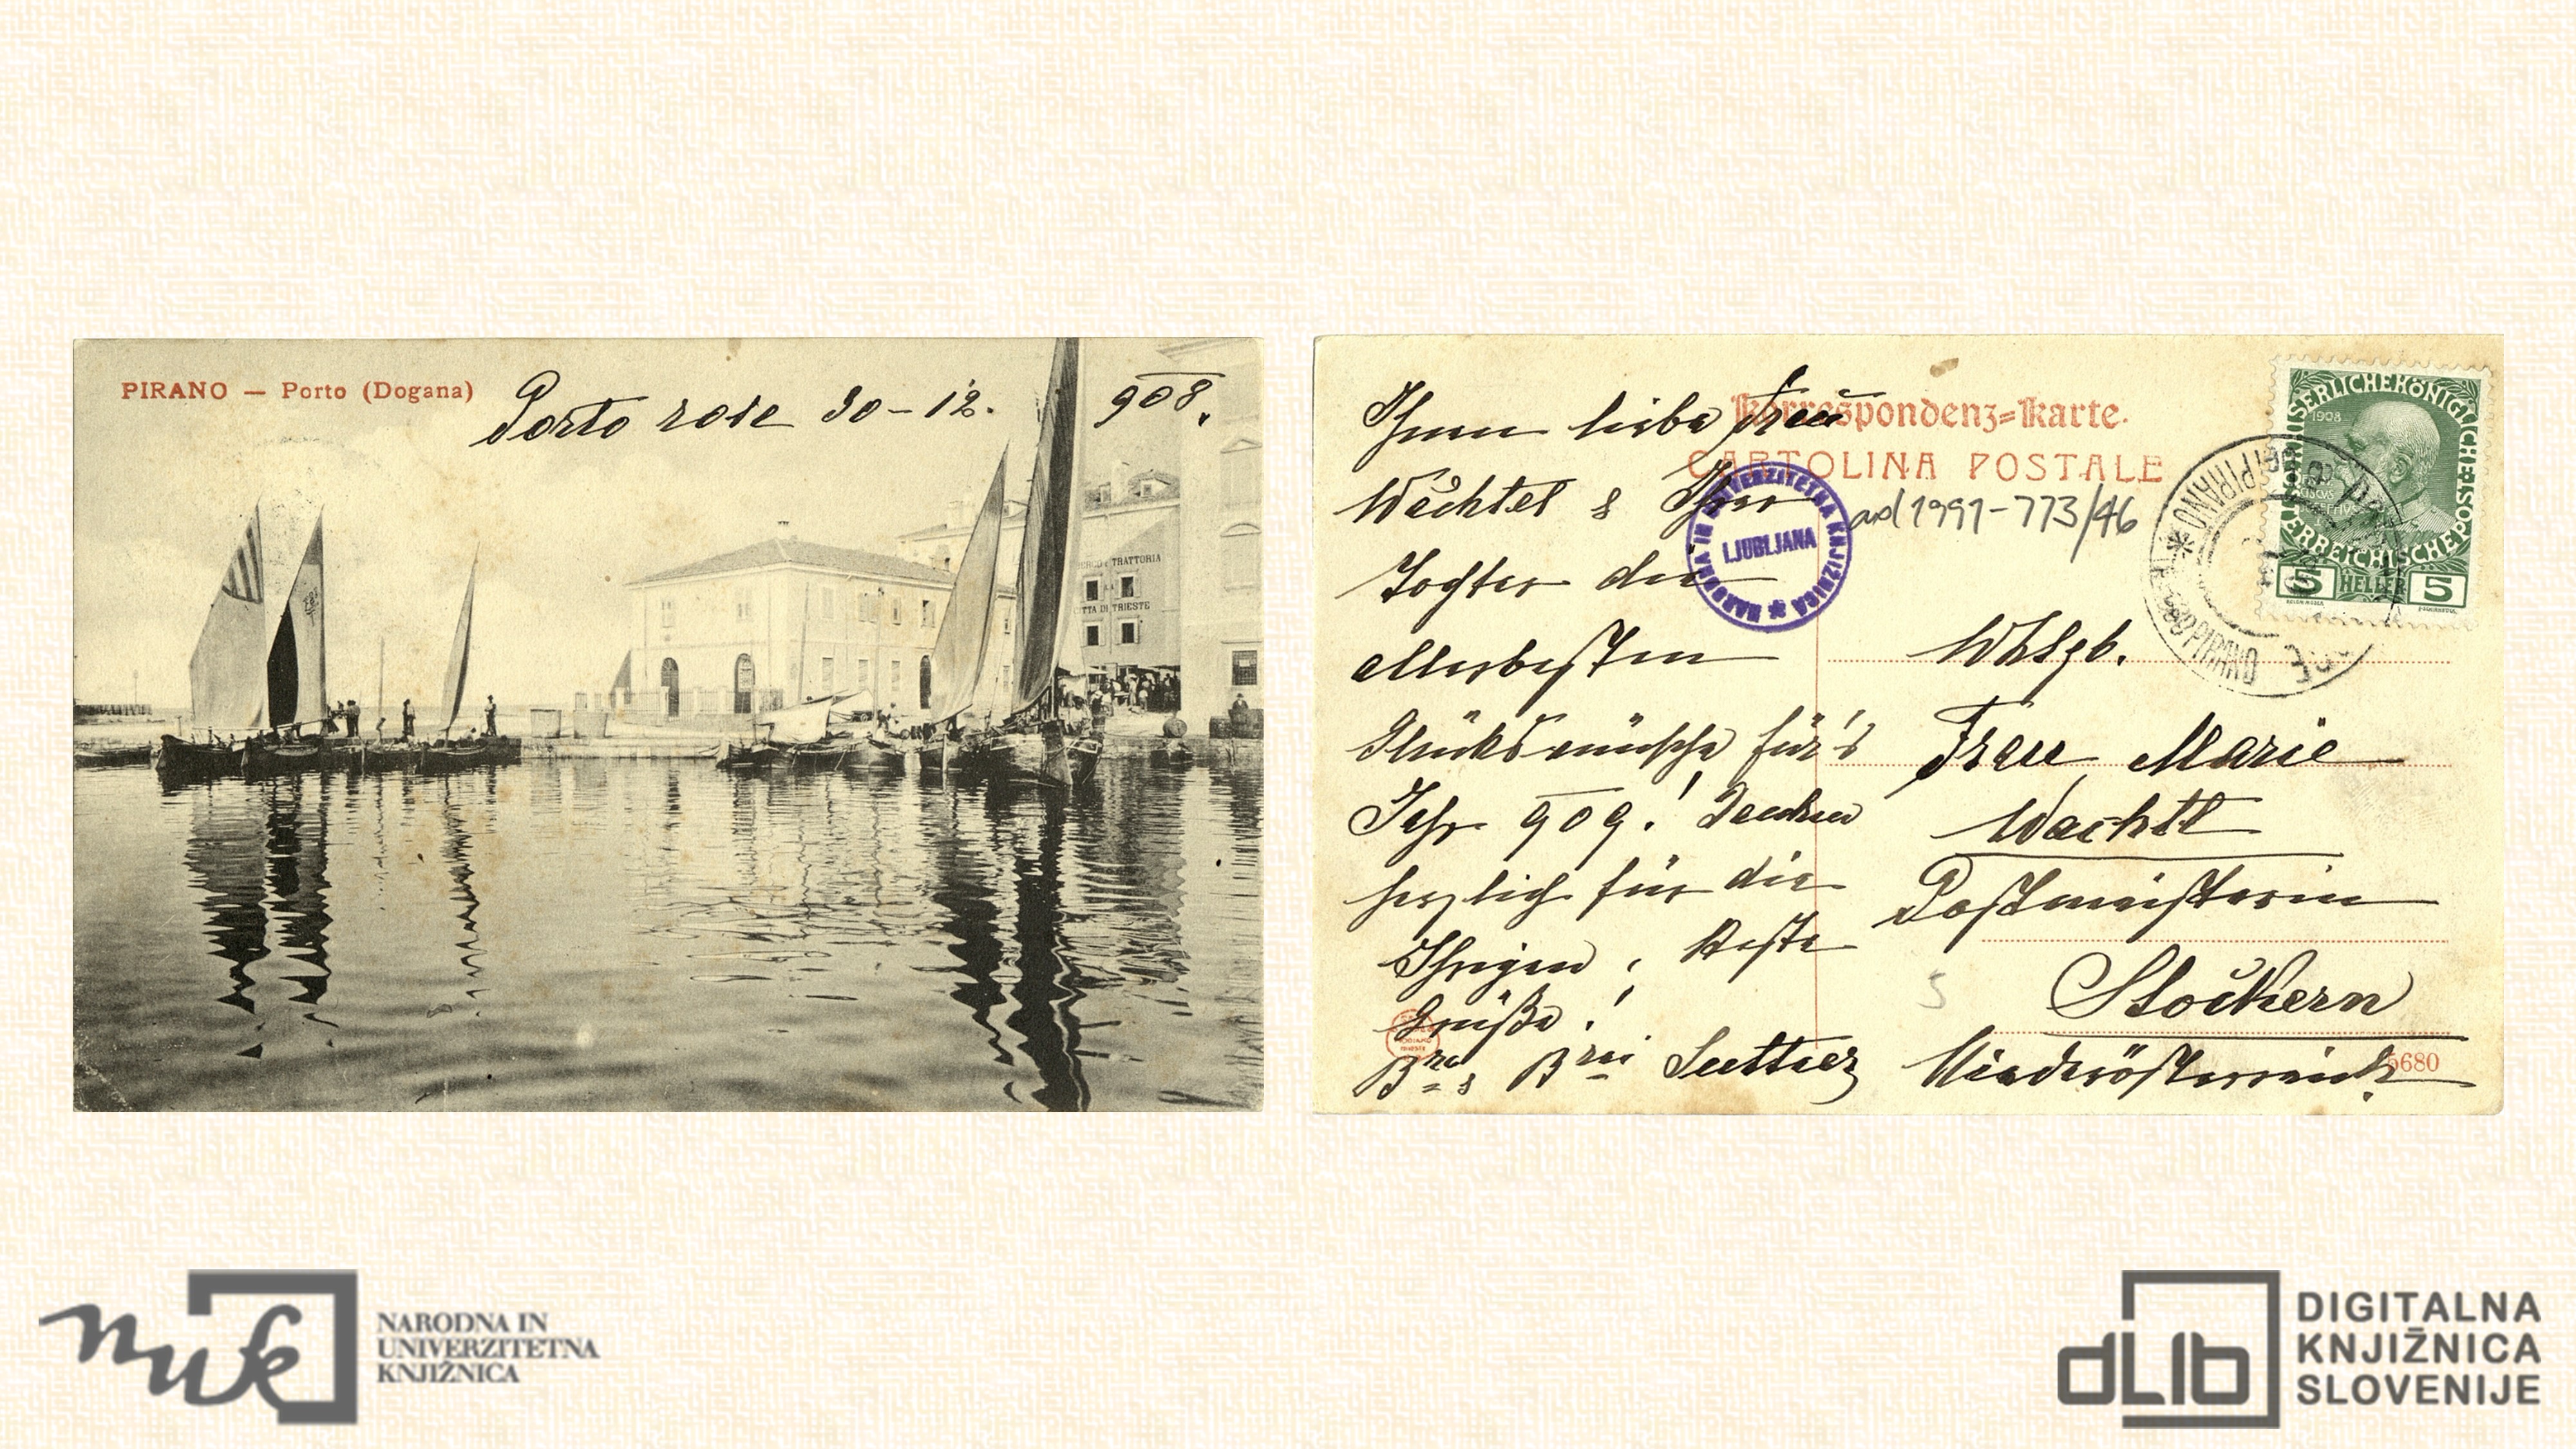 PIRANO — Porto (Dogana)
Porto rose 30-12. 908.
TRATTORIA
TTA DI TRIESTE
Korrespondenz-Karte.
CARTOLINA POSTALE
Ihnen liebe Frau
Wächtel & Ihrer
Tochter die
allerbesten
Glückswünsche für's
Jahr 909! Danken
herzlich für die
Ihrigen, Beste
Grüße!
Bon & Bnin Suttner
NARODNA IN UNIVERZITETNA KNJIŽNICA
LJUBLJANA
ad 1991-773/46
KAISERLICHEKÖNIGLICHE ÖSTERREICHISCHE POST
1908
5 HELLER 5
PIRANO
PIRANO
Whlgb.
Frau Marie
Wachtl
Postmeisterin
Stockern
Niederösterreich
5680
5
nuk
NARODNA IN
UNIVERZITETNA
KNJIŽNICA
dLib
DIGITALNA
KNJIŽNICA
SLOVENIJE